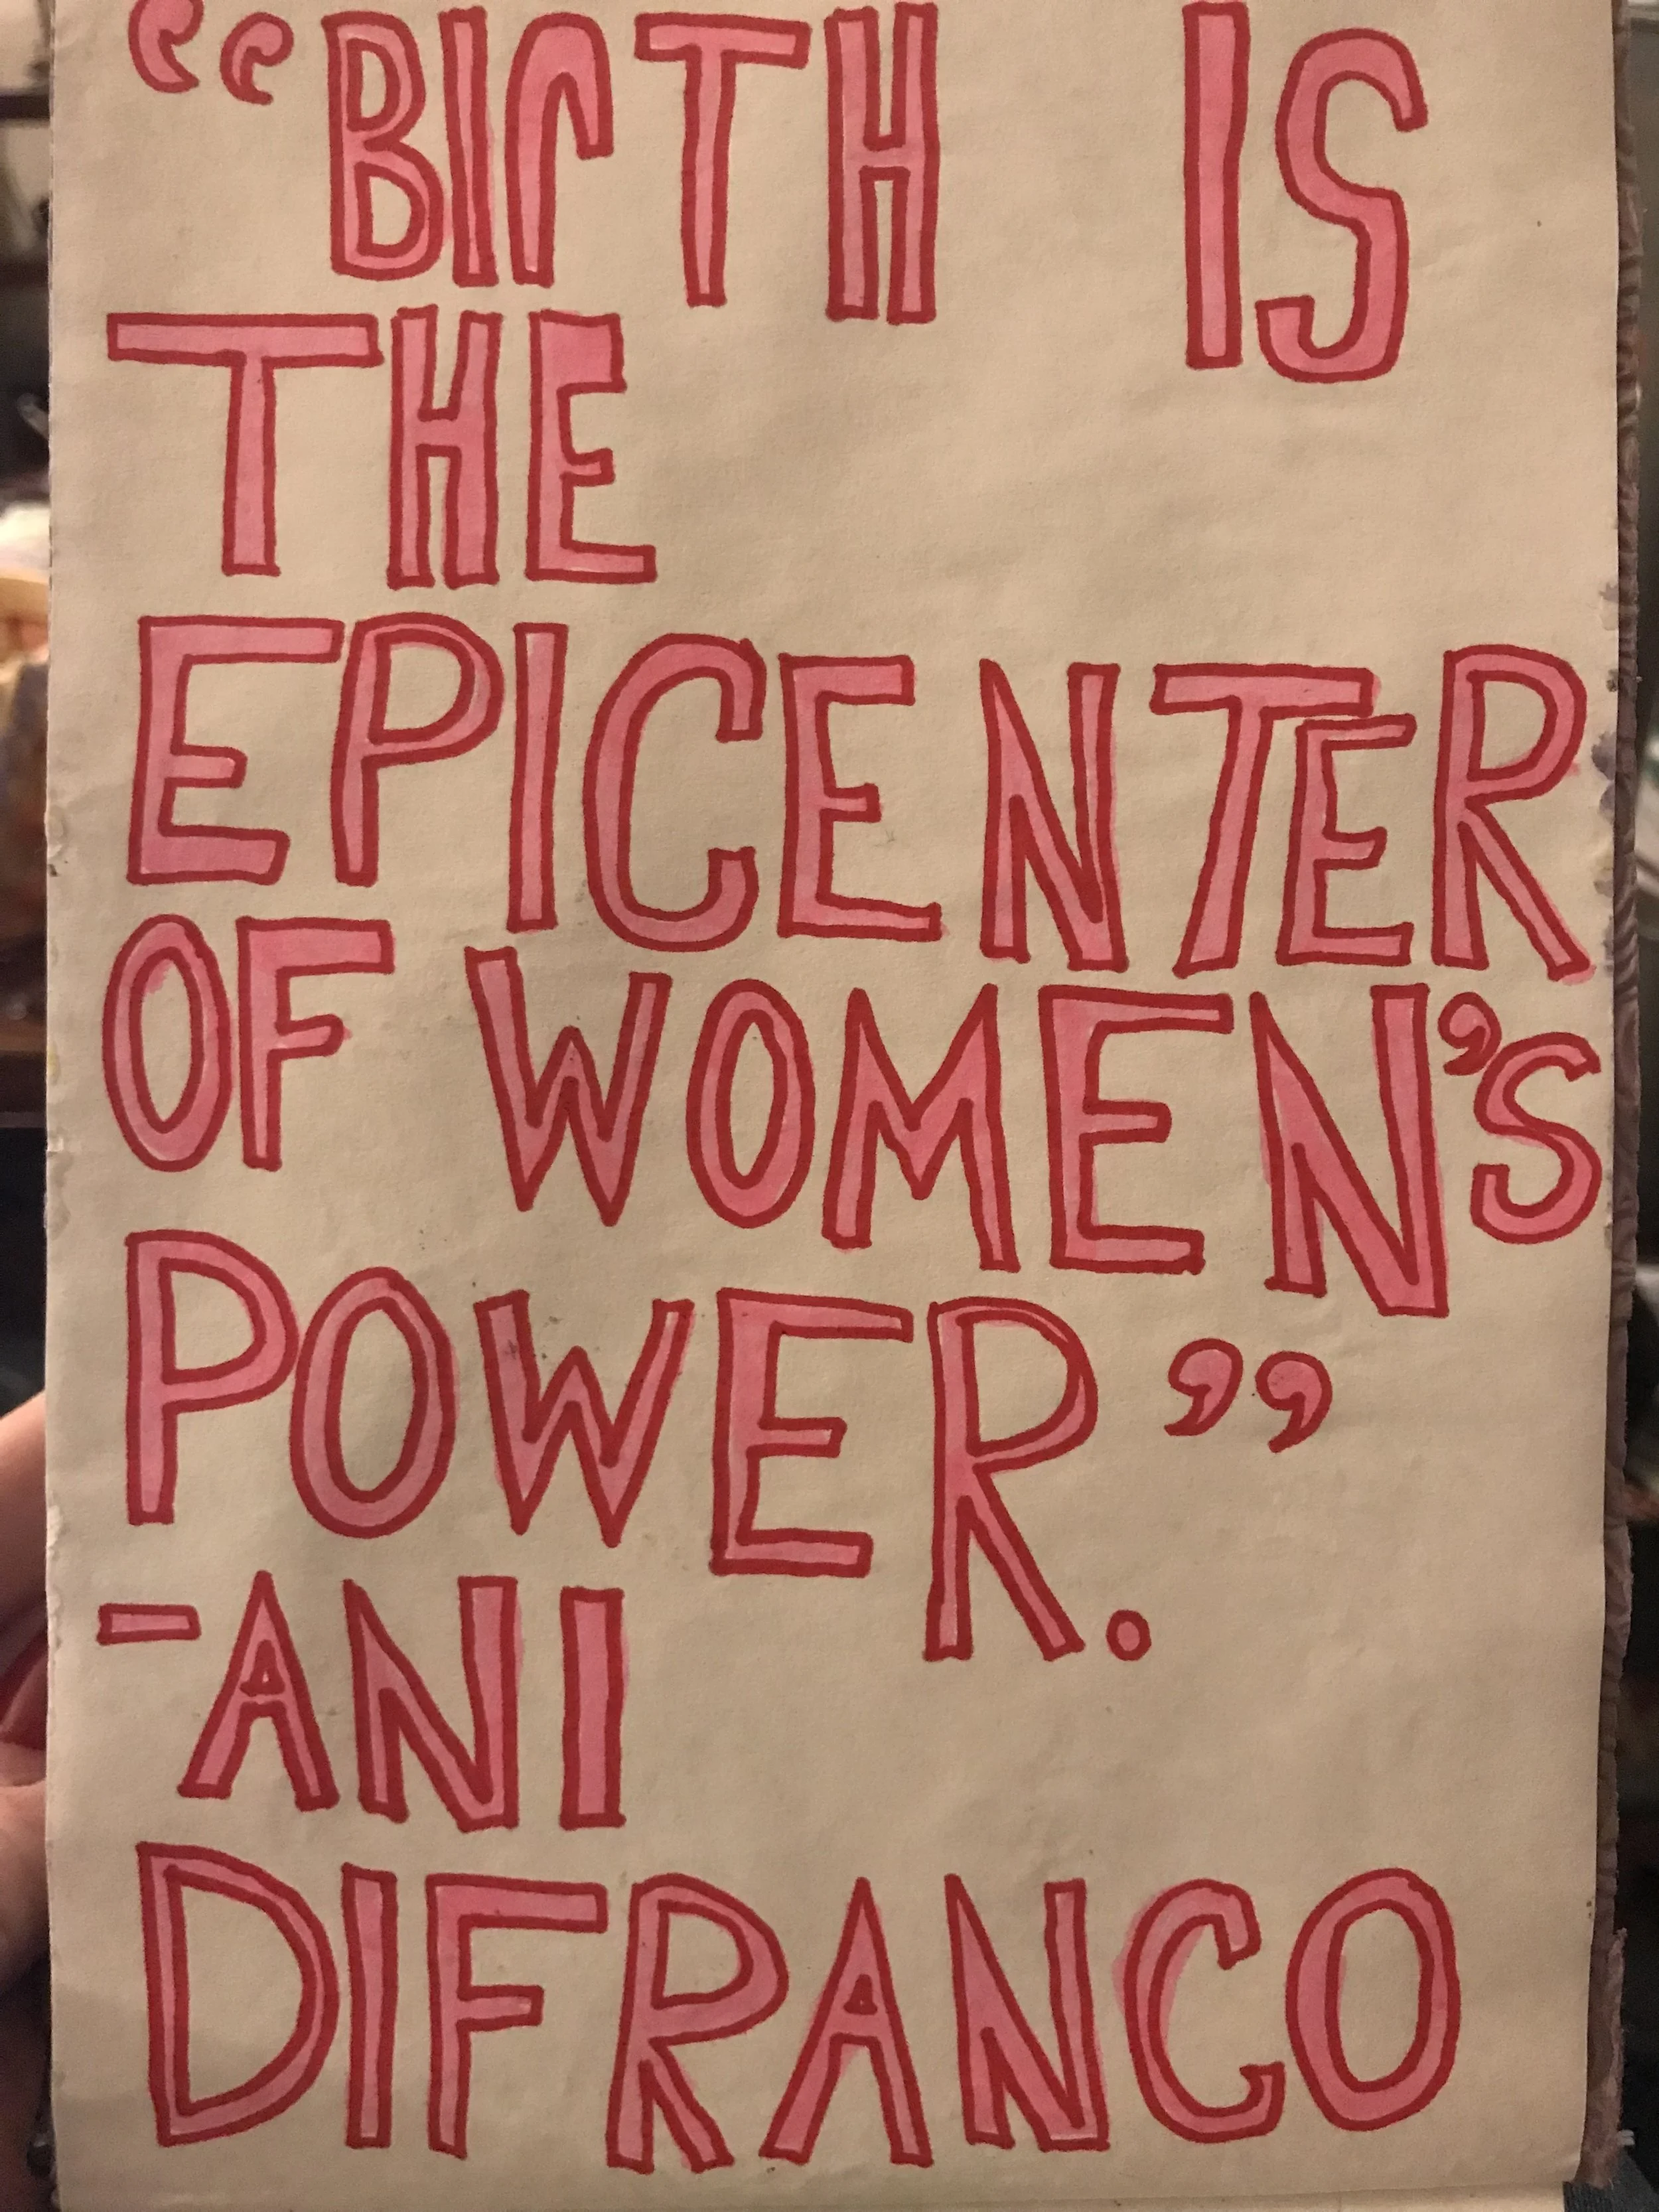 “BIrTH IS
THE
EPICENTER
OF WOMEN’S
POWER.”
-ANI
DIFRANCO